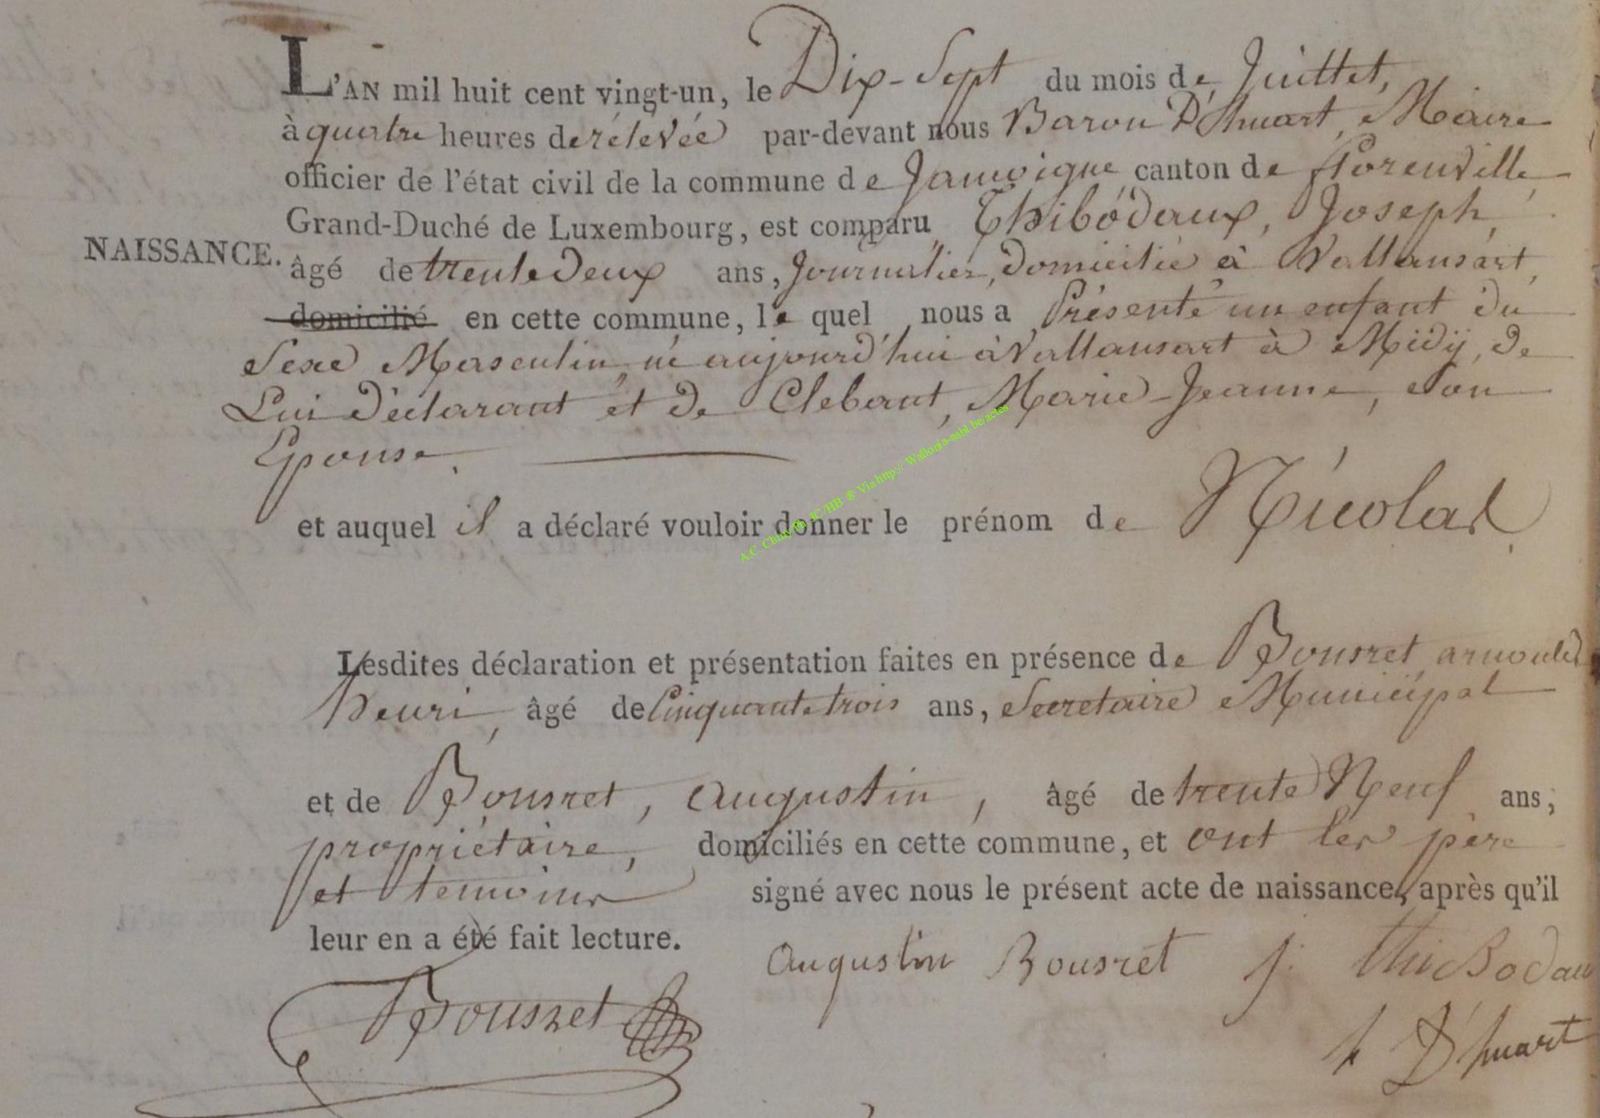 L'AN mil huit cent vingt-un, le Dix-Sept du mois de Juillet,
à quatre heures de rélévée par-devant nous Baron D'huart, Maire
officier de l'état civil de la commune de Jamoigne canton de Florenville
Grand-Duché de Luxembourg, est comparu Thibódaux, Joseph,
NAISSANCE.
âgé de trente Deux ans, Journalier, domicilié à Vallansart,
domicilié en cette commune, le quel nous a Présenté un enfant du
Sexe Masculin, né aujourd'hui à Vallansart à Midÿ, de
Lui Déclarant et de Clebant, Marie-Jeanne, son
Epouse.
et auquel il a déclaré vouloir donner le prénom de Nicolas.
Lesdites déclaration et présentation faites en présence de Bousret arnould
henri, âgé de Cinquante trois ans, Secretaire Municipal
et de Bousret, Augustin, âgé de trente Neuf ans,
propriétaire, domiciliés en cette commune, et ont les père
et temoins signé avec nous le présent acte de naissance, après qu'il
leur en a été fait lecture.
Augustin Bousret j. thieBodau
Bousret
h D'huart